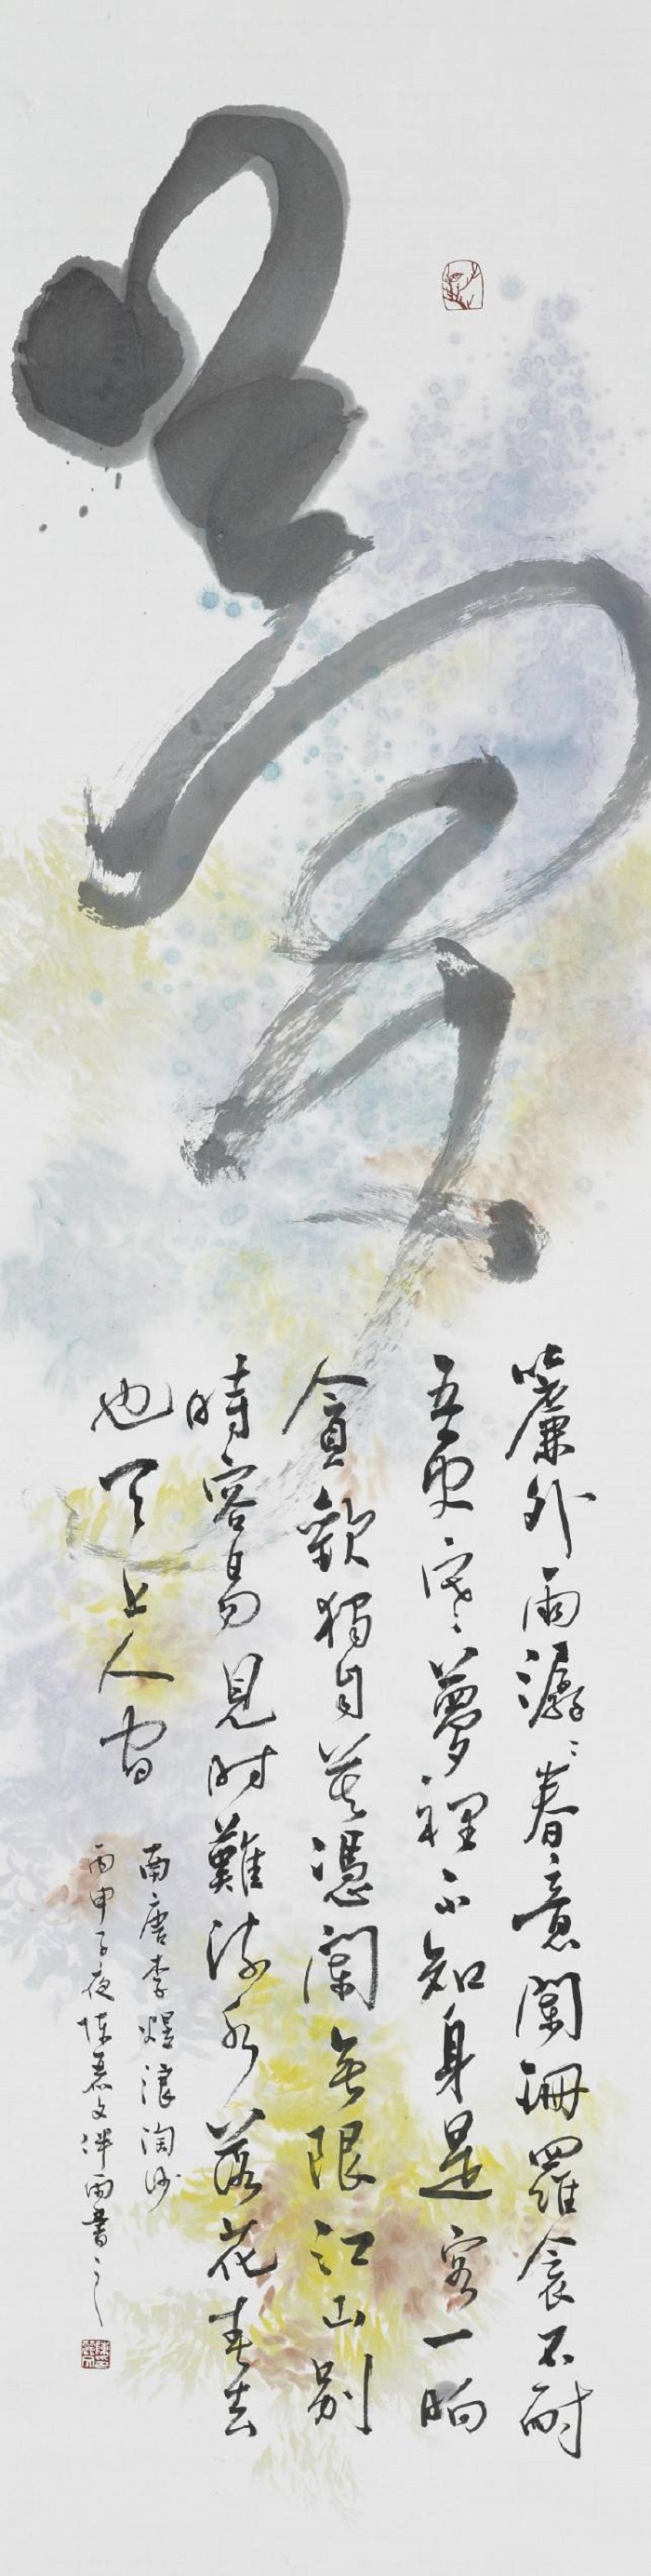 簾外雨潺潺春意闌珊羅衾不耐
五更寒夢裡不知身是客一晌
貪歡獨自莫憑闌無限江山別
時容易見時難流水落花春去
也天上人間
南唐李煜浪淘沙
丙申子夜陳文伴雨書之